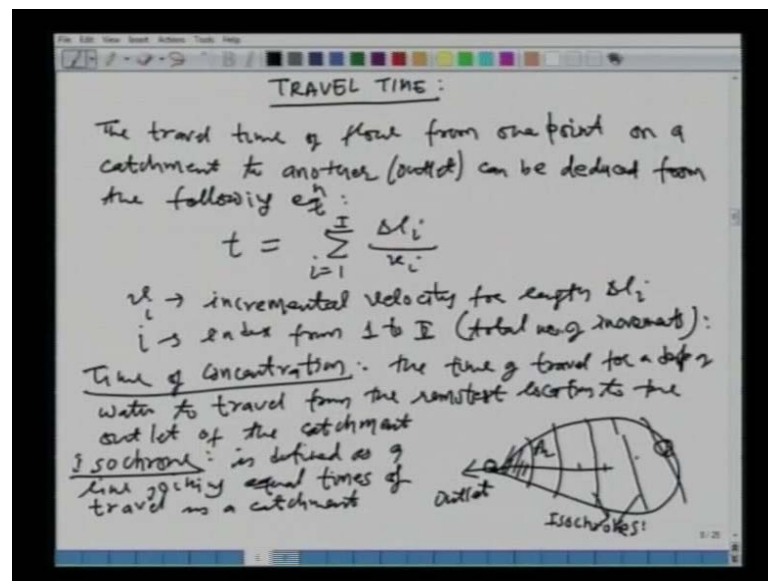 File Edit View Insert Actions Tools Help
TRAVEL TIME :
The travel time of flow from one point on a
catchment to another (outlet) can be deduced from
the following eqn :
t = Σ i=1 I Δli / vi
vi → incremental velocity for length Δli
i → index from 1 to I (total no. of increments) :
Time of concentration :- the time of travel for a drop of
water to travel from the remotest location to the
outlet of the catchment
Isochrone : is defined as a
line joining equal times of
travel in a catchment
Outlet
Isochrones :